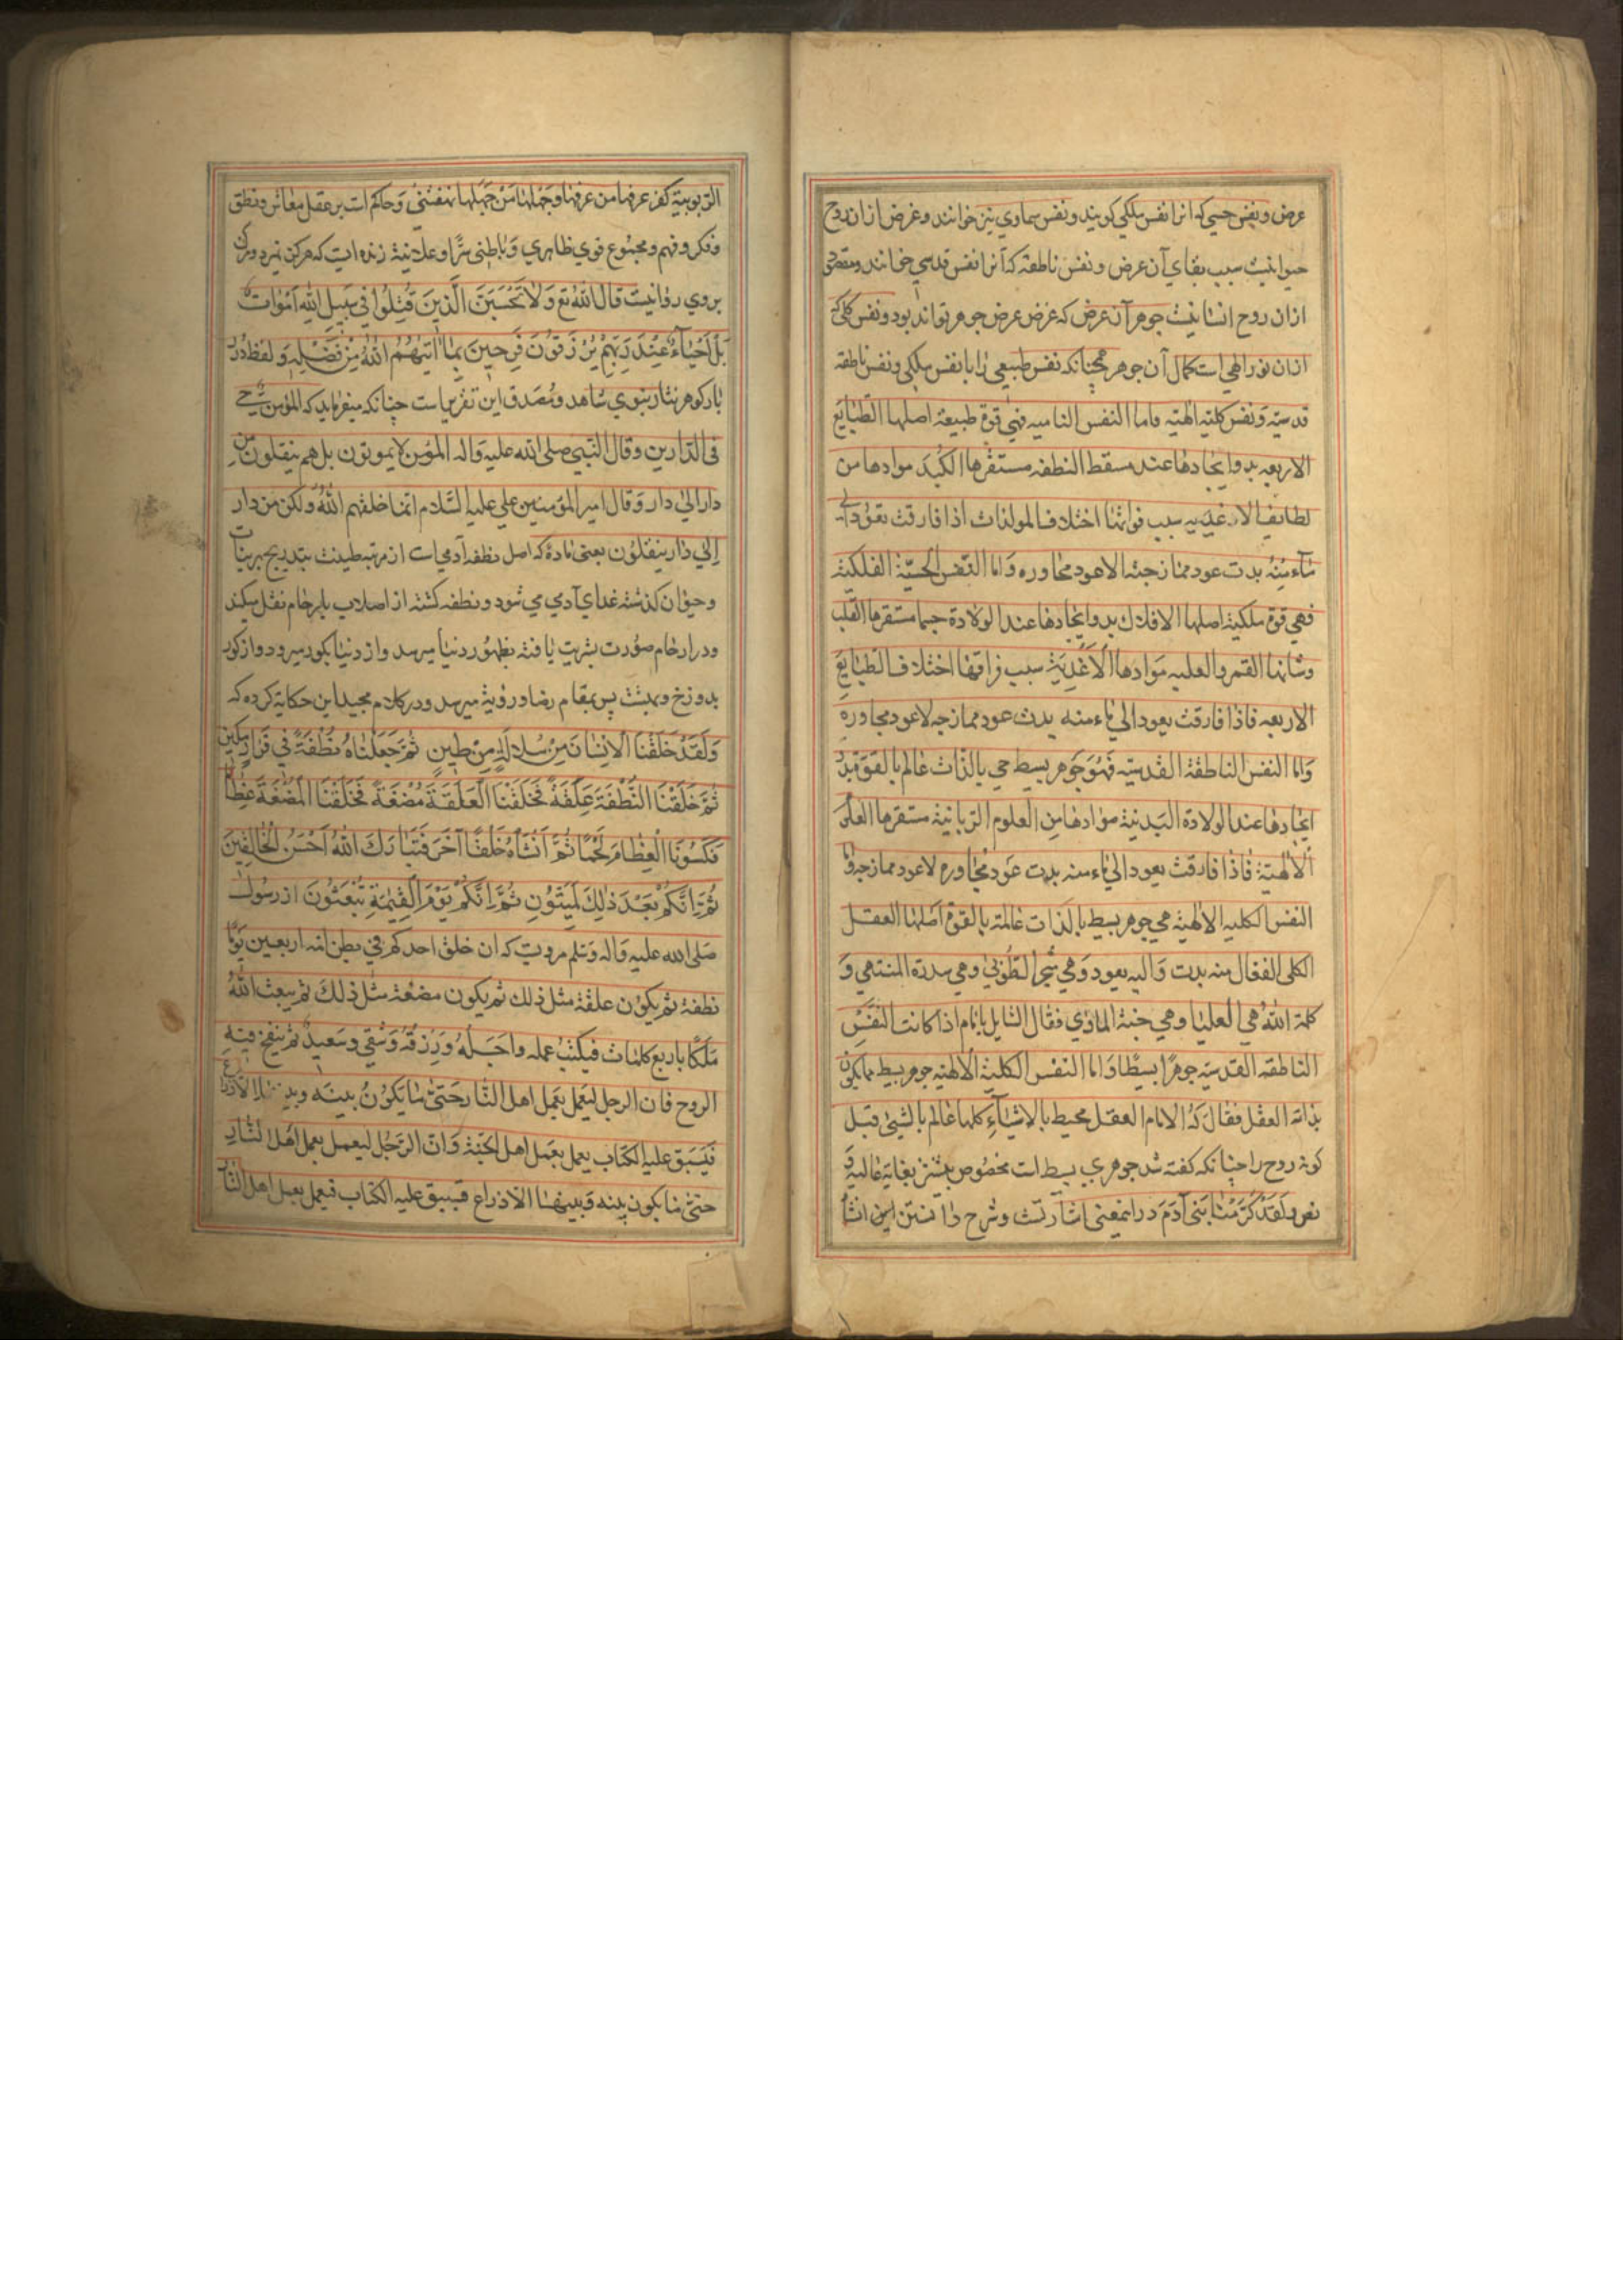 عرض و نفس حسی که انرا نفس ملکی کویند و نفس سماوی نیز خوانند و غرض ازان روح
حیوانیت سبب بقای آن عرض و نفس ناطقه که آنرا نفس قدسی خوانند و مقصود
ازان روح انسانیت جوهر آن عرض که غرض عرض جوهر تواند بود و نفس کلی که
ازان نور الهی است کمال آن جوهر همچنانکه نفس طبیعی را با نفس ملکی و نفس ناطقه
قدسیّه و نفس کلیّه الهیّه فاما النفس النامیه فهی قوة طبیعة اصلها الطّبایع
الاربعه بدو ایجادها عند مسقط النطفه مستقرها الکبد موادها من
لطایف الاغذیه سبب فراقها اختلاف المولدات اذا فارقت تعود الی
ماء منه بدت عود ممازجة الا عود مجاوره واما النّفس الحسیّة الفلکیة
فهی قوة ملکیة اصلها الافلاک بدو ایجادها عند الولادة جسما مستقرها القلب
وشانها القمر والعلیه موادها الاغذیة سبب فراقها اختلاف الطبایع
الاربعه فاذا فارقت یعود الی ماء منه بدت عود ممازجه لاعود مجاوره
واما النفس الناطقة القدسیّه فهو جوهر بسیط حی بالذّات عالم بالقوة بدو
ایجادها عند الولادة البدنیة موادها من العلوم الربانیة مستقرها العلم
الالهیّة فاذا فارقت یعود الی ماء منه بدت عود مجاوره لاعود ممازجه واما
النفس الکلیه الالهیة هی جوهر بسیط بالذات عالمة بالقوة اصلها العقل
الکلی الفعال منه بدت والیه یعود وهی شجر الطوبی وهی سدرة المنتهی و
کلمة الله هی العلیا وهی جنة الماوی فقال السایل یا امام اذا کانت النفس
الناطقه القدسیّه جوهرًا بسیطًا واما النفس الکلیّة الالهیّه جوهر بسیط مما یکون
بذاته العقل فقال له الامام العقل محیط بالاشیاء کلها عالم بالشیئ قبل
کونه روح را چنانکه کفته شد جوهری بسیط است مخصوص بشر بغایة عالیة و
نمود لقد کرّمنا بنی آدم در اینمعنی اشارتست وشرح دانستن این انشا
الربوبیة کفر عرفها من عرفها وجهلها من جهلها بنفسی و حاکم است بر عقل معاش و نطق
و فکر و فهم و مجموع قوی ظاهری و باطنی سرًّا وعلانیة زنده ایست که هرکز نمیرد و مرک
بروی روانیست قال الله تع وَلا تَحْسَبَنَّ الَّذینَ قُتِلُوا فی سَبیلِ اللهِ اَمْواتًا
بَلْ اَحْیاءٌ عِنْدَ رَبِّهِمْ یُرْزَقُونَ فَرِحینَ بِما اٰتیٰهُمُ اللهُ مِنْ فَضْلِهِ و لفظ درر
بار کوهر نثار نبوی شاهد و مصدق این تقریراست چنانکه میفرماید که المؤمن حی
فی الدّارین وقال النّبی صلی الله علیه واله المؤمن لا یموتون بل هم ینقلون من
دار الی دار وقال امیر المؤمنین علی علیه السّلام انما خلقهم الله ولکن من دار
الی دار ینقلون یعنی ماده که اصل نطفه آدمی است از مرتبه طینت بتدریج بر نبات
و حیوان کذشته غذای آدمی می شود و نطفه کشته از اصلاب بارحام نقل میکند
و در ارحام صورت بشریت یافته بظهور دنیا میرسد و از دنیا بکور میرود و از کور
بدوزخ و بهشت پس بمقام رضا و رؤیة میرسد و در کلام مجید این حکایة کرده که
وَلَقَدْ خَلَقْنَا الْاِنْسانَ مِنْ سُلالَةٍ مِنْ طینٍ ثُمَّ جَعَلْناهُ نُطْفَةً فی قَرارٍ مَکینٍ
ثُمَّ خَلَقْنَا النُّطْفَةَ عَلَقَةً فَخَلَقْنَا الْعَلَقَةَ مُضْغَةً فَخَلَقْنَا الْمُضْغَةَ عِظامًا
فَکَسَوْنَا الْعِظامَ لَحْمًا ثُمَّ اَنْشَاْناهُ خَلْقًا آخَرَ فَتَبارَکَ اللهُ اَحْسَنُ الْخالِقینَ
ثُمَّ اِنَّکُمْ بَعْدَ ذٰلِکَ لَمَیِّتُونَ ثُمَّ اِنَّکُمْ یَوْمَ الْقِیٰمَةِ تُبْعَثُونَ از رسول
صلی الله علیه واله وسلم مرویت که ان خلق احدکم فی بطن امه اربعین یومًا
نطفة ثم یکون علقة مثل ذلک ثم یکون مضغة مثل ذلک ثم یبعث الله
ملکًا باربع کلمات فیکتب عمله واجله ورزقه وشقی وسعید ثم ینفخ فیه
الروح فان الرجل لیعمل بعمل اهل النّار حتی ما یکون بینه وبینها الا ذراع
فیسبق علیه الکتاب یعمل بعمل اهل الجنّة وانّ الرّجل لیعمل بعمل اهل النار
حتی ما یکون بینه وبینها الا ذراع فیسبق علیه الکتاب فیعمل بعمل اهل النار